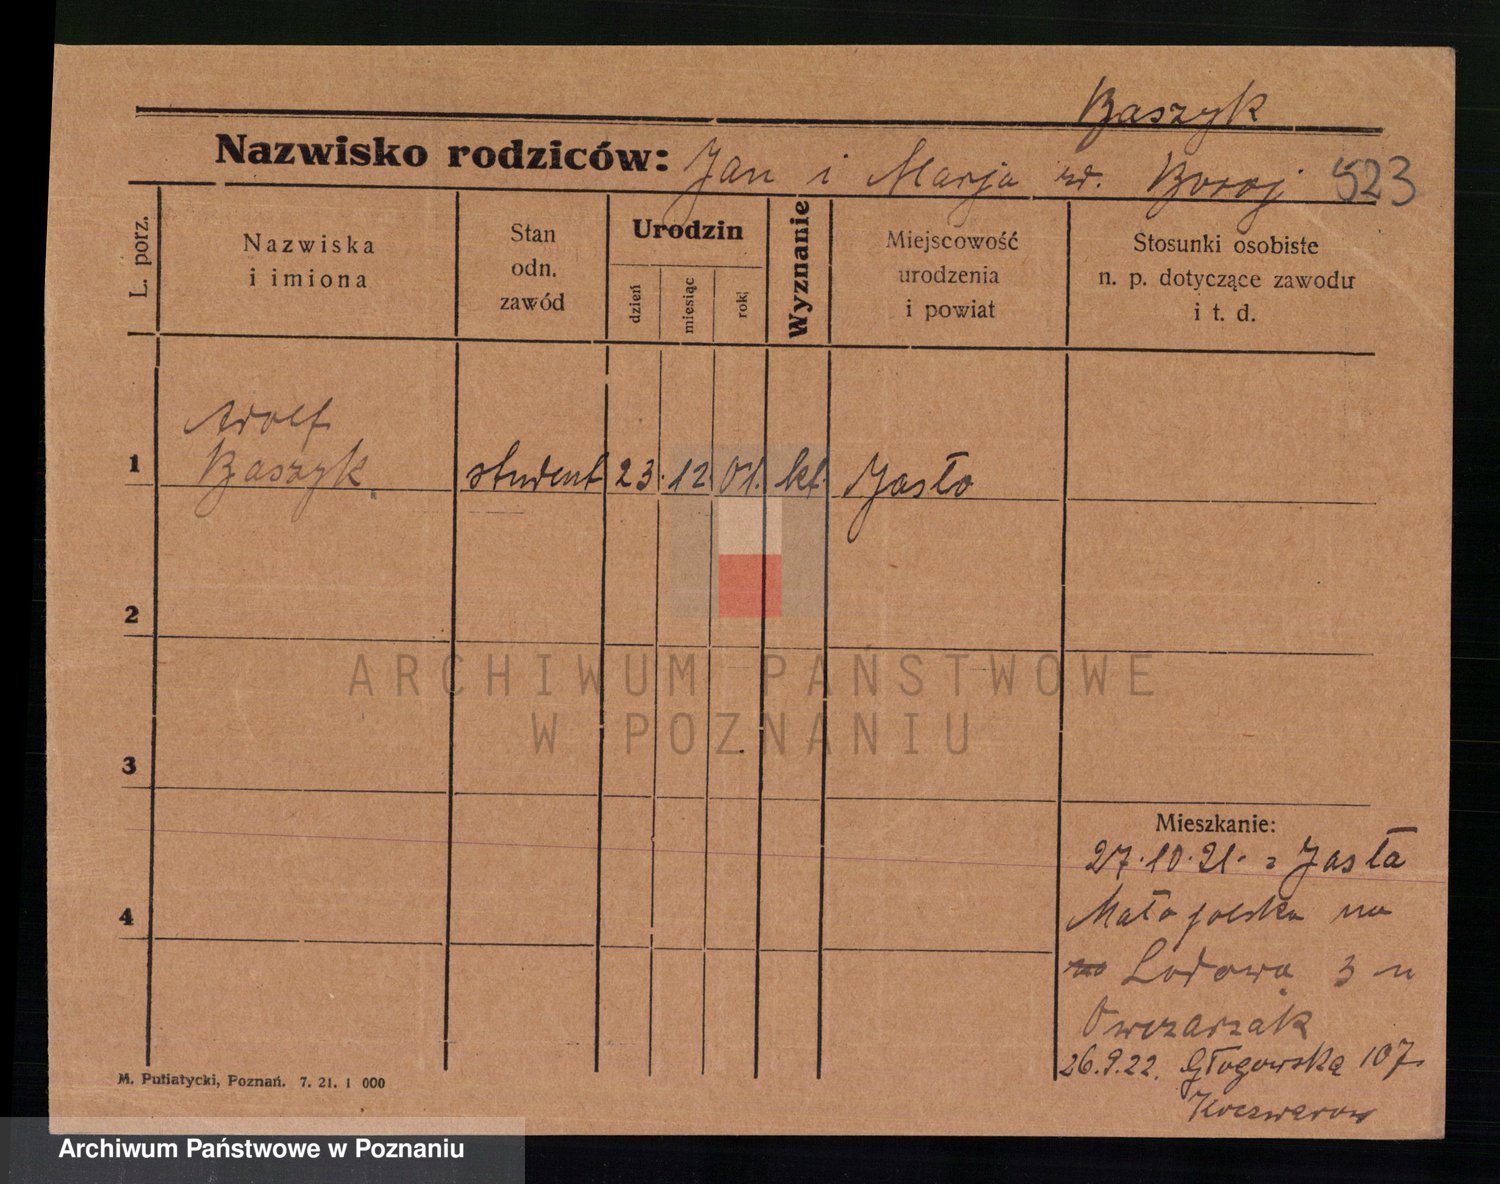 Baszyk
Nazwisko rodziców: Jan i Marja zd. Boroj 523
L. porz.
Nazwiska
i imiona
Stan
odn.
zawód
Urodzin
dzień
miesiąc
rok
Wyznanie
Miejscowość
urodzenia
i powiat
Stosunki osobiste
n. p. dotyczące zawodu
i t. d.
Adolf
1 Baszyk student 23. 12. 01. kt. Jasło
2
3
4
Mieszkanie:
27.10.21. z Jasła
Małopolska na
Lodowa 3 u
Owczarzak
26.9.22. Głogowska 107
M. Putiatycki, Poznań. 7. 21. 1 000
ARCHIWUM PAŃSTWOWE
W POZNANIU
Archiwum Państwowe w Poznaniu